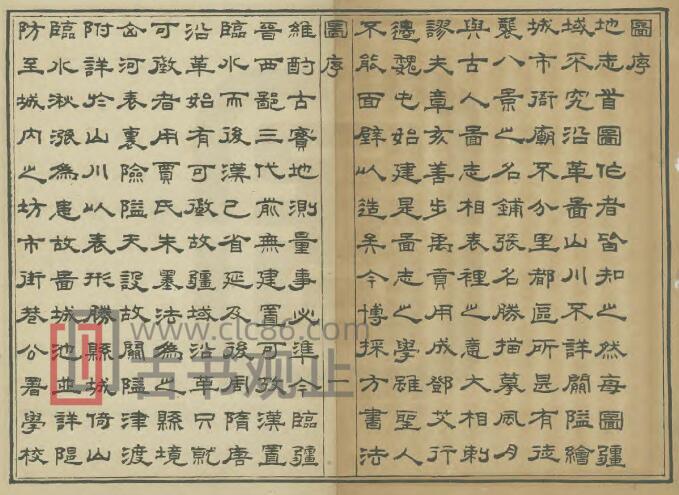 圖序
地志首圖作者皆知之然每圖疆
域未究沿革圖山川不詳關隘繪
城市衙廟不分里都區所甚有徒
襲八景之名鋪張名勝描摹風月
與古人圖志相表裡之意大相剌
謬夫章亥善步禹貢用成鄧艾行
邊魏屯始建是圖志之學雖聖人
不能面壁以造矣今博採方書法
圖序 二
維酌古實地測量事必準今臨疆
晉西鄙三代前無建置可攷漢置
臨水而後漢已省延及後周隋唐
沿革始有可徵故疆域沿革只就
可徵者用賈氏朱墨法為之縣境
河表裏險隘天設故關隘津渡
附詳於山川以表形勝縣城倚山
臨水湫漲為患故圖城池並詳隄
防至城內之坊市街巷公署學校
www.clc86.com
古书观止